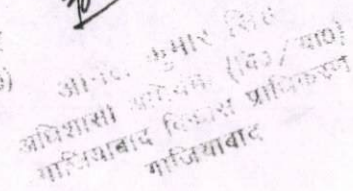 कुमार सिंह
अधिशासी अभियंता (वि०/या०)
गाजियाबाद विकास प्राधिकरण
गाजियाबाद